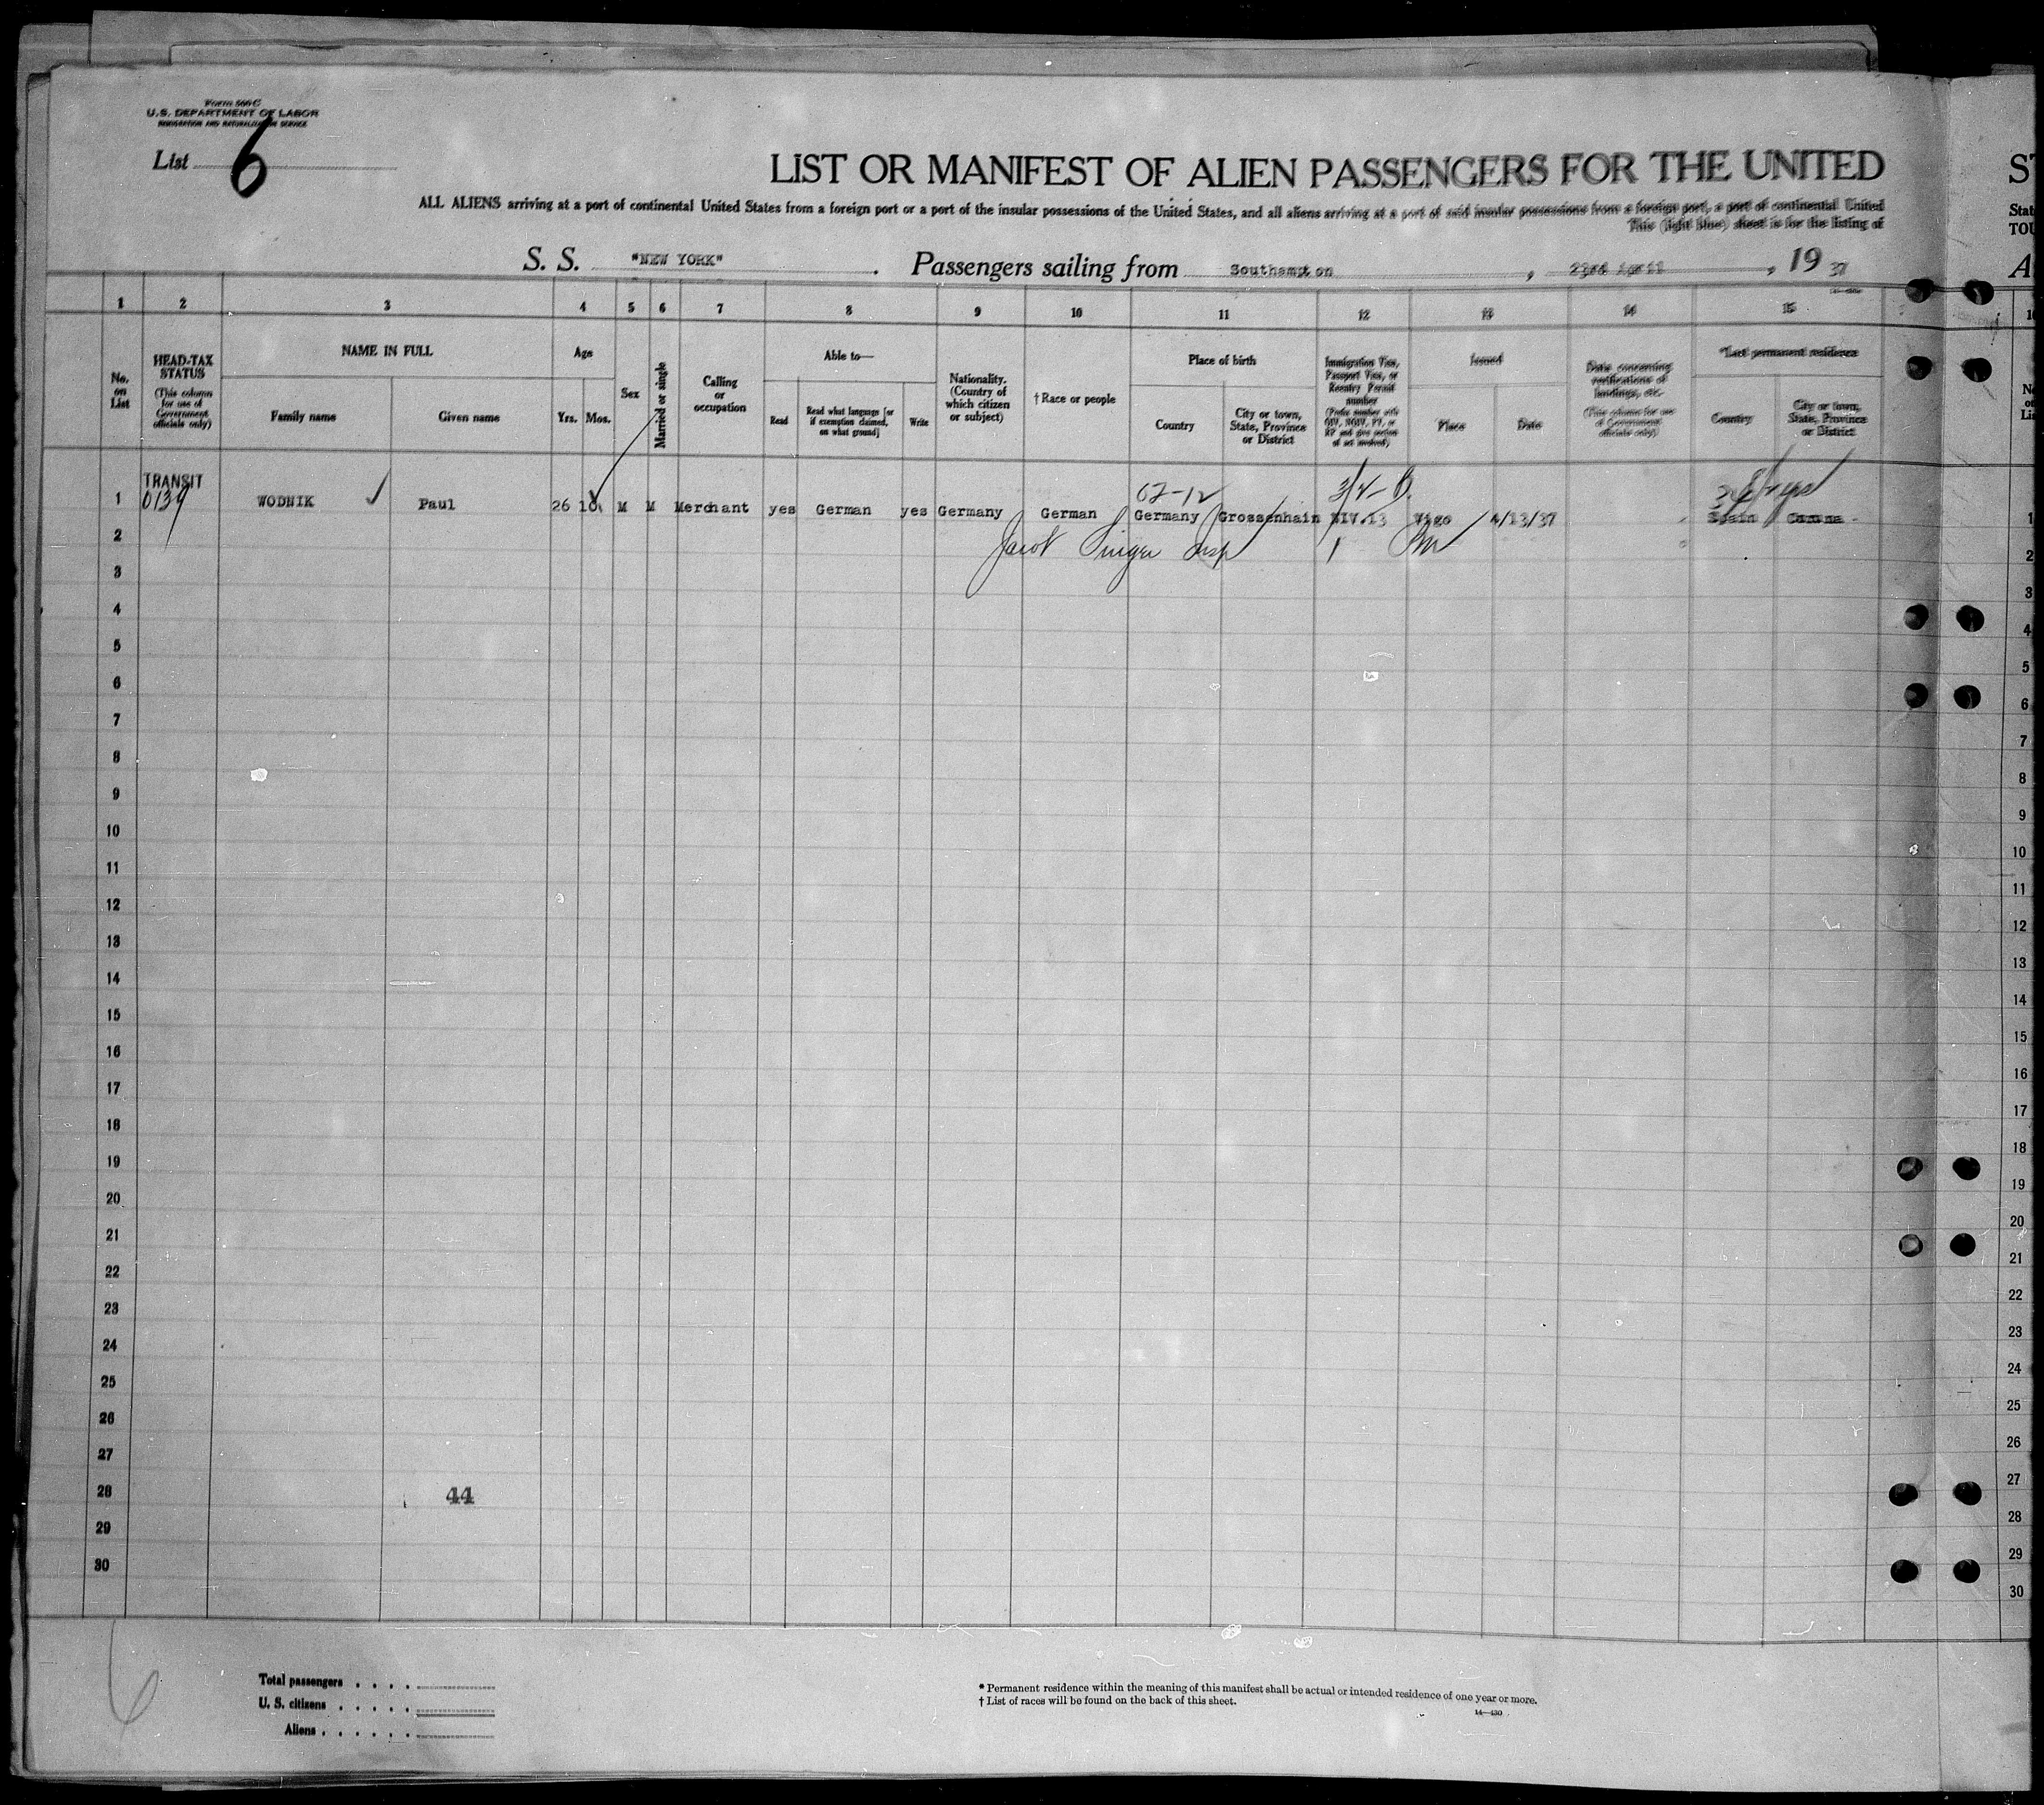 Form 500 C
U.S. DEPARTMENT OF LABOR
IMMIGRATION AND NATURALIZATION SERVICE
List 6
LIST OR MANIFEST OF ALIEN PASSENGERS FOR THE UNITED
ST
ALL ALIENS arriving at a port of continental United States from a foreign port or a port of the insular possessions of the United States, and all aliens arriving at a port of said insular possessions from a foreign port, a port of continental United
Stat
This (light blue) sheet is for the listing of
TOU
S. S. "NEW YORK". Passengers sailing from Southampton, 23rd April, 19 37
A
1 2 3 4 5 6 7 8 9 10 11 12 13 14 15
No. on List
HEAD-TAX STATUS
(This column for use of Government officials only)
NAME IN FULL
Family name
Given name
Age
Yrs. Mos.
Sex
Married or single
Calling or occupation
Able to—
Read
Read what language [or if exemption claimed, on what ground]
Write
Nationality. (Country of which citizen or subject)
† Race or people
Place of birth
Country
City or town, State, Province or District
Immigration Visa, Passport Visa, or Reentry Permit number
(Prefix number with QIV, NQIV, PV, or RP and give section of act involved)
Issued
Place
Date
Data concerning verifications of landings, etc.
(This column for use of Government officials only)
*Last permanent residence
Country
City or town, State, Province or District
TRANSIT
0139
62-12
1 WODNIK ✓ Paul 26 10 M M Merchant yes German yes Germany German Germany Grossenhain NIV.13 Vigo 4/13/37 Spain 1
Jacob Singer Insp
2
3
4
5
6
7
8
9
10
11
12
13
14
15
16
17
18
19
20
21
22
23
24
25
26
27
28 44
29
30
Total passengers . . . .
U. S. citizens . . . . .
Aliens . . . . . .
6
* Permanent residence within the meaning of this manifest shall be actual or intended residence of one year or more.
† List of races will be found on the back of this sheet.
14—430